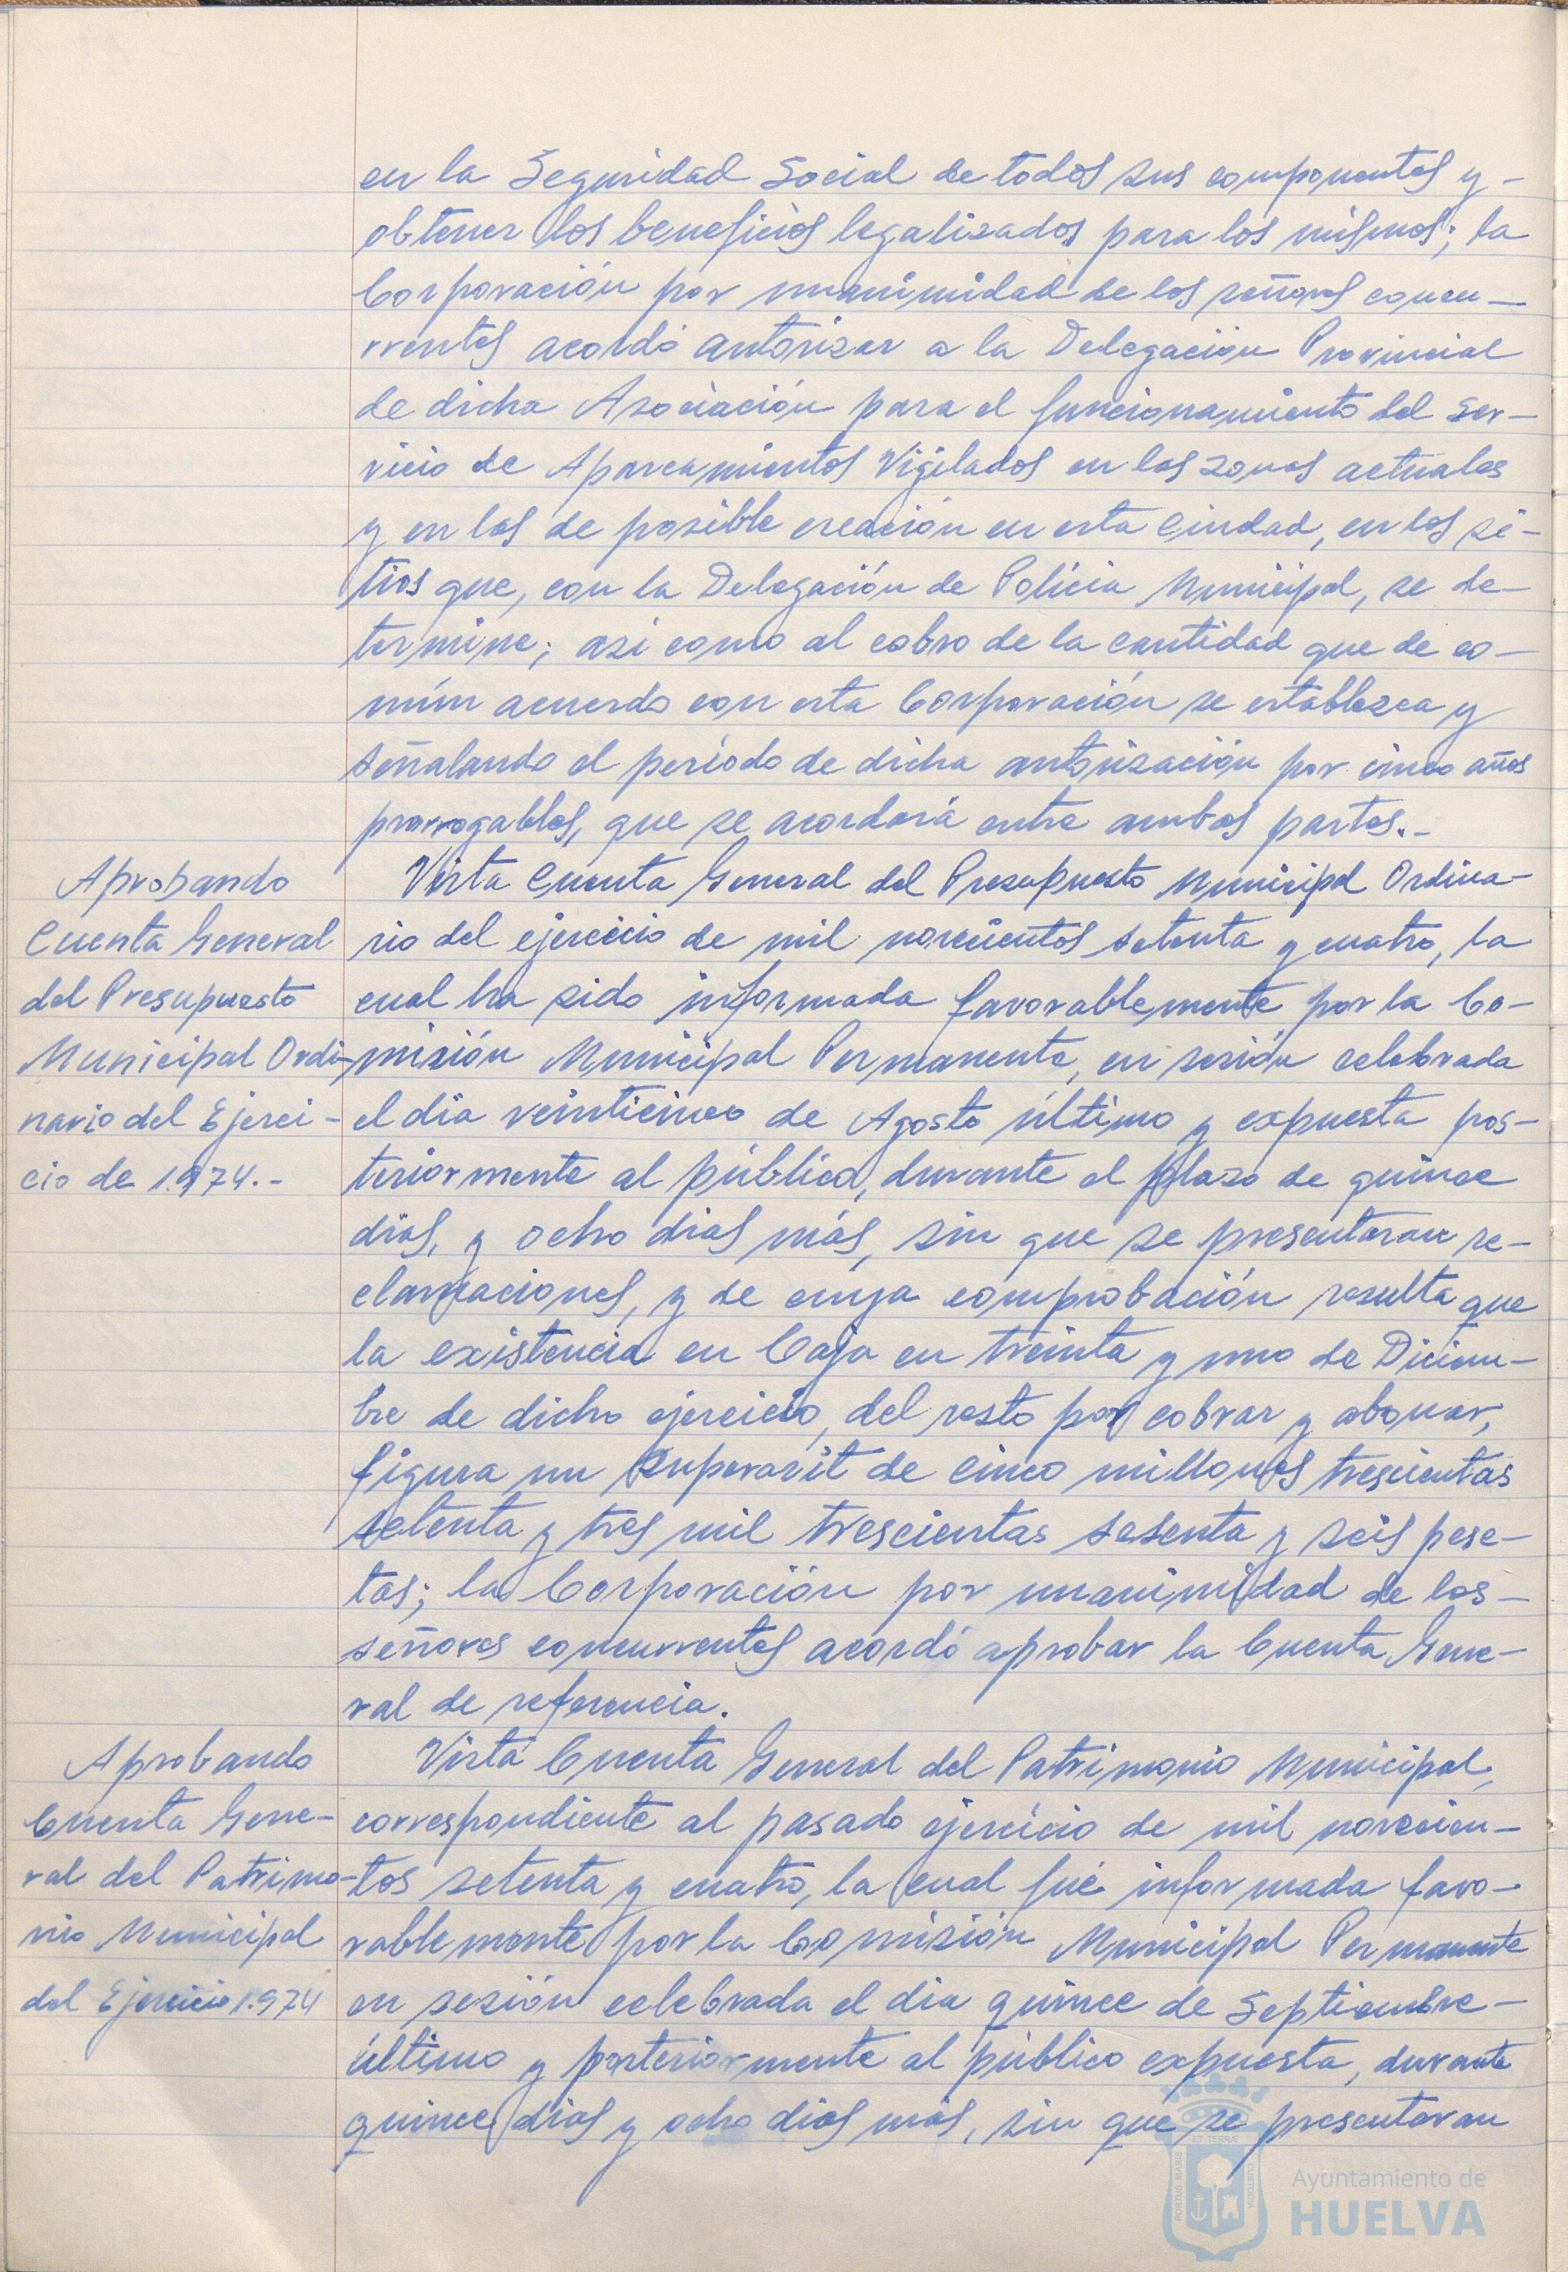 en la Seguridad Social de todos sus componentes y -
obtener los beneficios legalizados para los mismos; la
Corporación por unanimidad de los señores concu-
rrentes acordó autorizar a la Delegación Provincial
de dicha Asociación para el funcionamiento del Ser-
vicio de Aparcamientos Vigilados en las zonas actuales
y en las de posible creación en esta Ciudad, en los si-
tios que, con la Delegación de Policia Municipal, se de-
termine; asi como al cobro de la cantidad que de co-
mún acuerdo con esta Corporación se establezca y
señalando el período de dicha autorización por cinco años
prorrogables, que se acordará entre ambas partes.-
Aprobando
Cuenta General
del Presupuesto
Municipal Ordi-
nario del Ejerci-
cio de 1.974.-
Vista Cuenta General del Presupuesto Municipal Ordina-
rio del ejercicio de mil novecientos setenta y cuatro, la
cual ha sido informada favorablemente por la Co-
misión Municipal Permanente, en sesión celebrada
el dia veinticinco de Agosto último y expuesta pos-
teriormente al público, durante el plazo de quince
días, y ocho dias más, sin que se presentaran re-
clamaciones, y de cuya comprobación resulta que
la existencia en Caja en treinta y uno de Diciem-
bre de dicho ejercicio, del resto por cobrar y abonar,
figura un Superavit de cinco millones trescientas
setenta y tres mil trescientas sesenta y seis pese-
tas; la Corporación por unanimidad de los -
señores concurrentes acordó aprobar la Cuenta Gene-
ral de referencia.
Aprobando
Cuenta Gene-
ral del Patrimo-
nio Municipal
del Ejercicio 1.974
Vista Cuenta General del Patrimonio Municipal,
correspondiente al pasado ejercicio de mil novecien-
tos setenta y cuatro, la cual fué informada favo-
rablemente por la Comisión Municipal Permanente
en sesión celebrada el dia quince de Septiembre -
último y posteriormente al público expuesta, durante
quince dias y ocho dias más, sin que se presentaran
PORTUS MARIS
ET TERRÆ
CUSTODIA
Ayuntamiento de
HUELVA